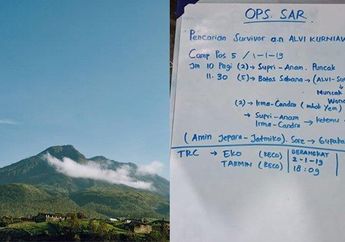 OPS. SAR.
Pencarian Survivor a.n ALVI KURNIAW
Camp Pos 5 / 1-1-19
Jm 10 Pagi (2) → Supri-Anam. Puncak
11.30 (5) → Batas Sabana → (ALVI-Su
Muncak
Won
(2) → Irma-Candra (mbok Yem)
→ Supri-Anam
Irma-Candra → Ketemu
(Amin Jepara-Jatmiko). Sore → Gupaka
TRC → EKO (RECO)
TARMIN (RECO)
BERANGKAT
2-1-19
18:09